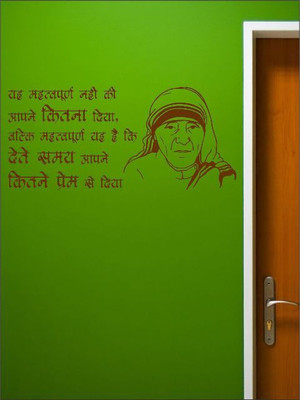 यह महत्वपूर्ण नही की
आपने कितना दिया,
बल्कि महत्वपूर्ण यह है कि
देते समय आपने
कितने प्रेम से दिया